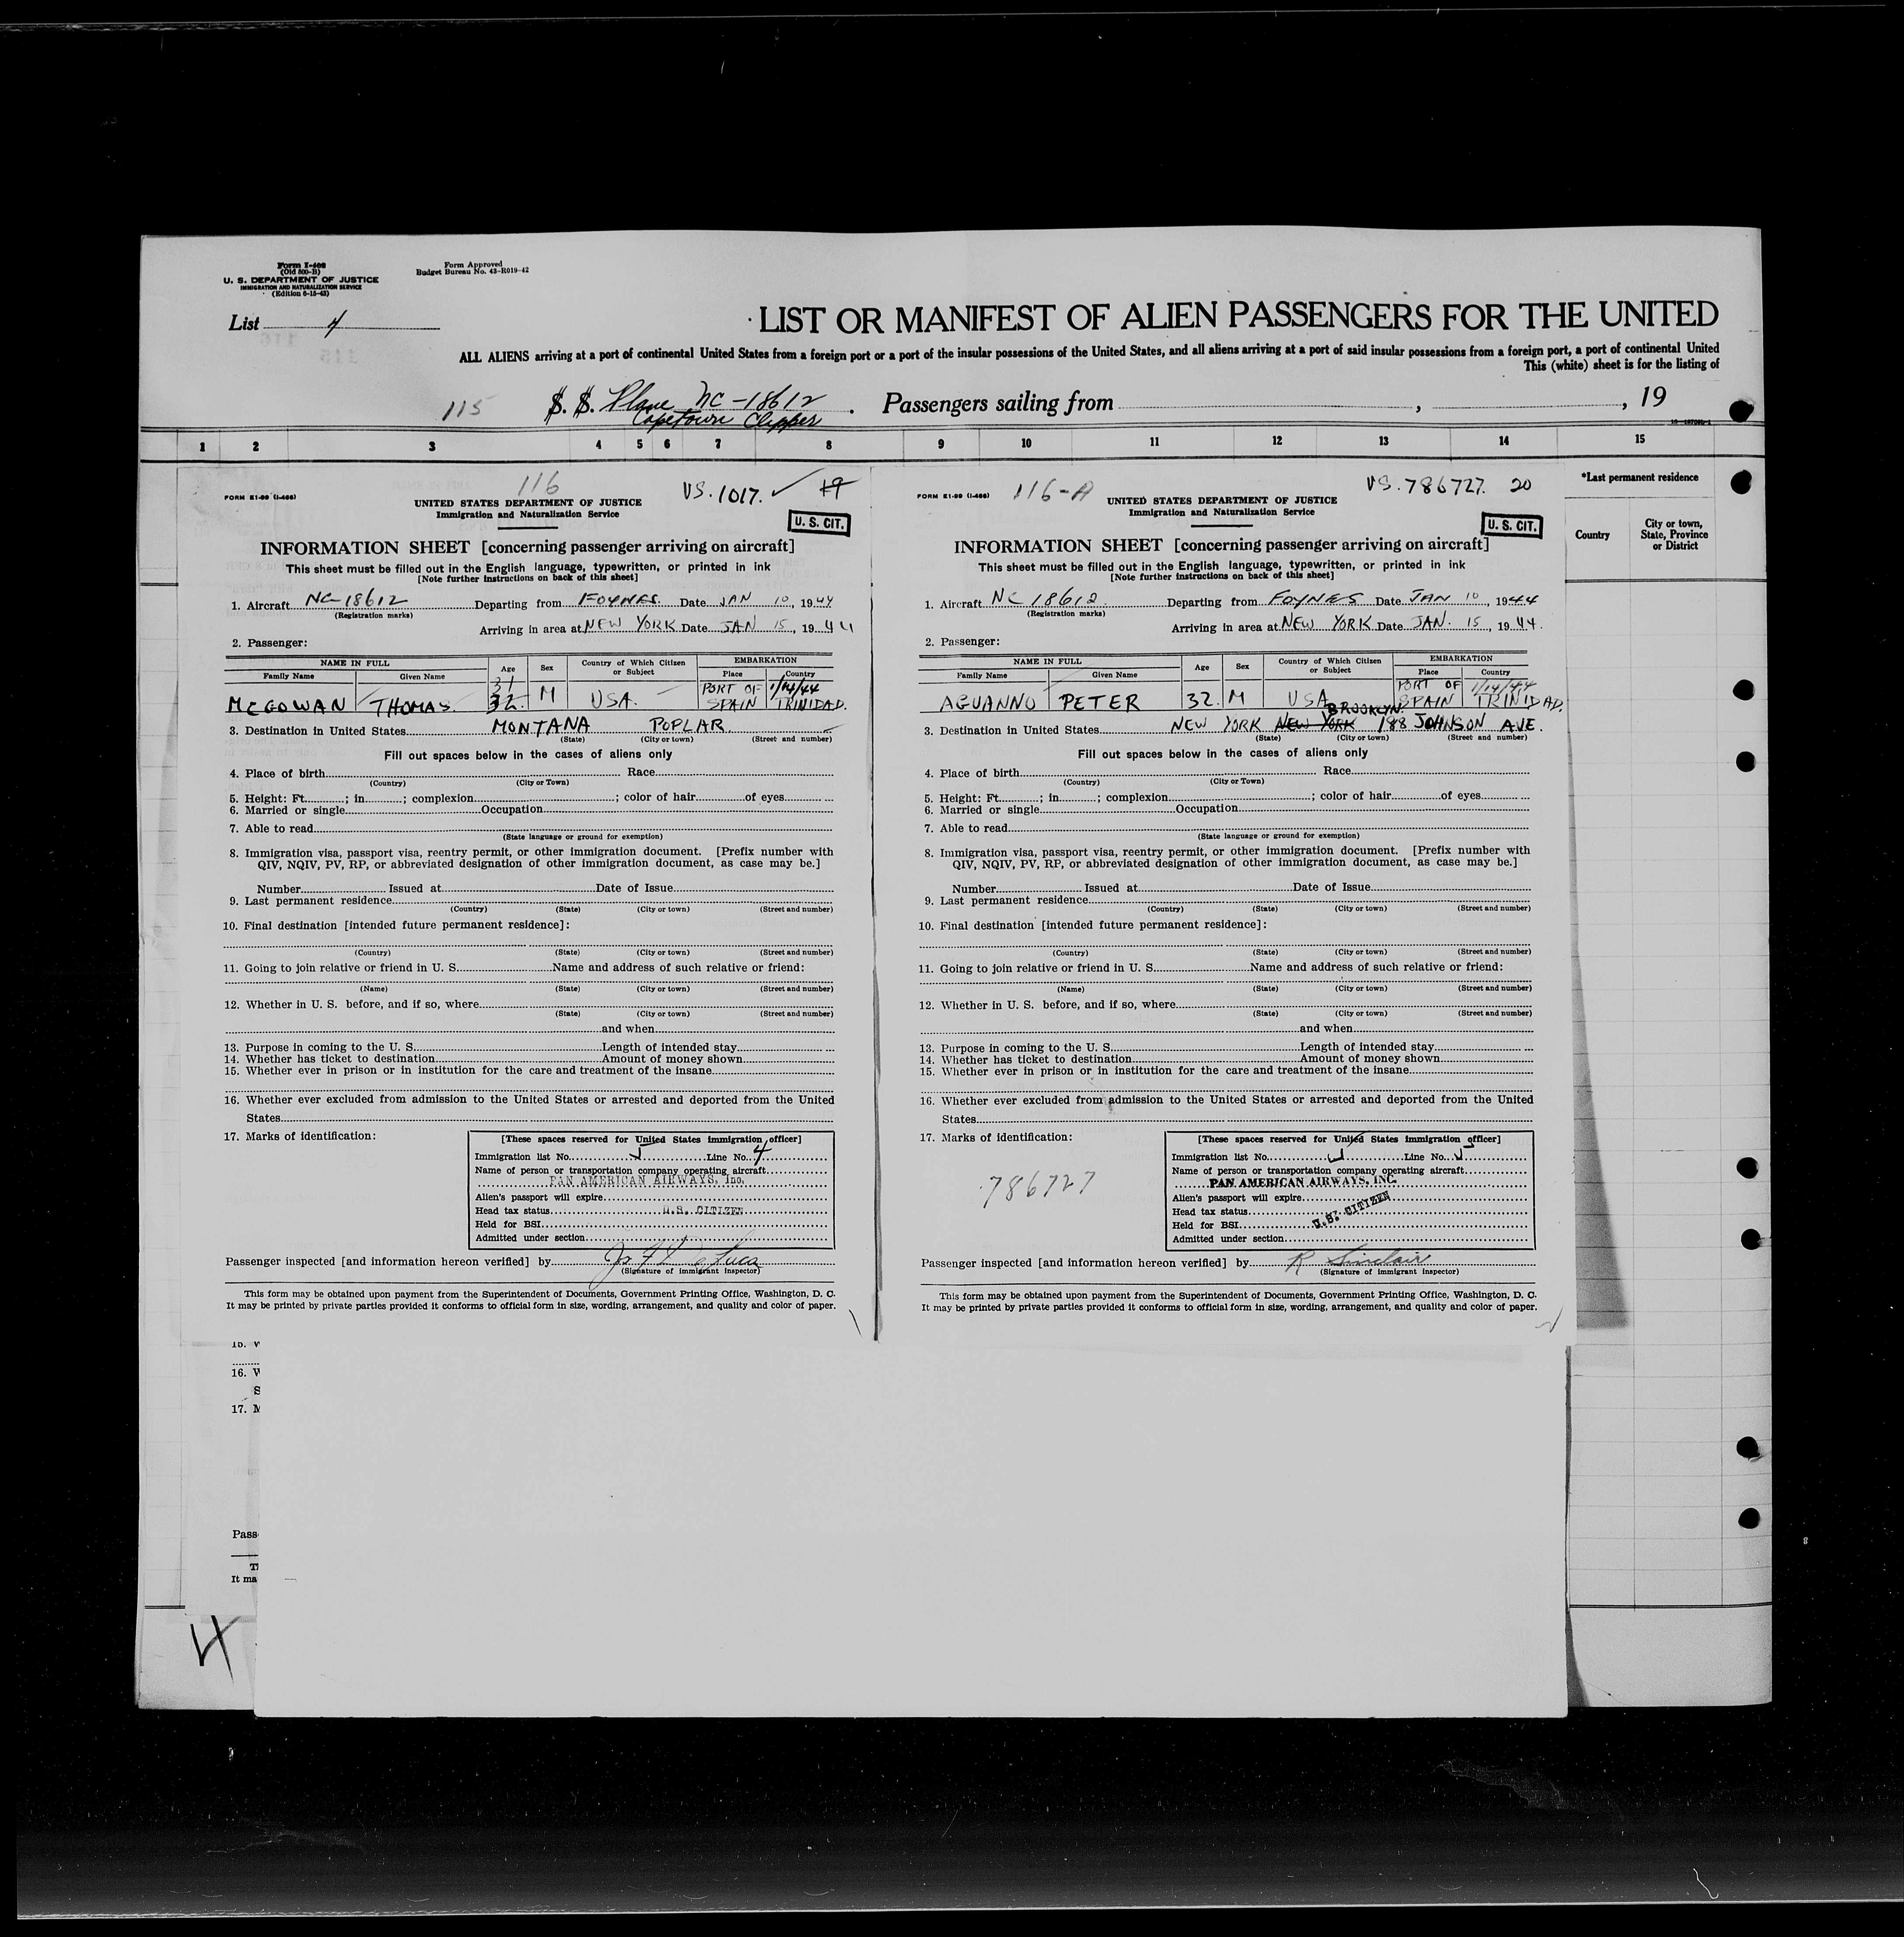 Form I-408
(Old 500-B)
U. S. DEPARTMENT OF JUSTICE
IMMIGRATION AND NATURALIZATION SERVICE
(Edition 6-15-43)
Form Approved
Budget Bureau No. 43-R019-42
List 4
LIST OR MANIFEST OF ALIEN PASSENGERS FOR THE UNITED
ALL ALIENS arriving at a port of continental United States from a foreign port or a port of the insular possessions of the United States, and all aliens arriving at a port of said insular possessions from a foreign port, a port of continental United
This (white) sheet is for the listing of
115 S. S. Plane NC-18612 Passengers sailing from , , 19
Capetown Clipper
1 2 3 4 5 6 7 8 9 10 11 12 13 14 15
*Last permanent residence
Country
City or town, State, Province or District
116 VS. 1017. 19
FORM E1-99 (I-466)
UNITED STATES DEPARTMENT OF JUSTICE
Immigration and Naturalization Service
U. S. CIT.
INFORMATION SHEET [concerning passenger arriving on aircraft]
This sheet must be filled out in the English language, typewritten, or printed in ink
[Note further instructions on back of this sheet]
1. Aircraft NC-18612 Departing from FOYNES Date JAN 10, 1944
(Registration marks)
Arriving in area at NEW YORK Date JAN 15, 1944
2. Passenger:
NAME IN FULL Age Sex Country of Which Citizen or Subject EMBARKATION
Family Name Given Name Place Country
31 PORT OF 1/14/44
MCGOWAN THOMAS. 32. M USA. SPAIN TRINIDAD.
3. Destination in United States MONTANA POPLAR.
(State) (City or town) (Street and number)
Fill out spaces below in the cases of aliens only
4. Place of birth Race
(Country) (City or Town)
5. Height: Ft. ; in. ; complexion ; color of hair of eyes
6. Married or single Occupation
7. Able to read
(State language or ground for exemption)
8. Immigration visa, passport visa, reentry permit, or other immigration document. [Prefix number with
QIV, NQIV, PV, RP, or abbreviated designation of other immigration document, as case may be.]
Number Issued at Date of Issue
9. Last permanent residence
(Country) (State) (City or town) (Street and number)
10. Final destination [intended future permanent residence]:
(Country) (State) (City or town) (Street and number)
11. Going to join relative or friend in U. S. Name and address of such relative or friend:
(Name) (State) (City or town) (Street and number)
12. Whether in U. S. before, and if so, where
(State) (City or town) (Street and number)
and when
13. Purpose in coming to the U. S. Length of intended stay
14. Whether has ticket to destination Amount of money shown
15. Whether ever in prison or in institution for the care and treatment of the insane
16. Whether ever excluded from admission to the United States or arrested and deported from the United
States
17. Marks of identification:
[These spaces reserved for United States immigration officer]
Immigration list No. Line No. 4
Name of person or transportation company operating aircraft
PAN AMERICAN AIRWAYS, Inc.
Alien's passport will expire
Head tax status U.S. CITIZEN
Held for BSI
Admitted under section
Passenger inspected [and information hereon verified] by
(Signature of immigrant inspector)
This form may be obtained upon payment from the Superintendent of Documents, Government Printing Office, Washington, D. C.
It may be printed by private parties provided it conforms to official form in size, wording, arrangement, and quality and color of paper.
116-A VS. 786727. 20
FORM E1-99 (I-466)
UNITED STATES DEPARTMENT OF JUSTICE
Immigration and Naturalization Service
U. S. CIT.
INFORMATION SHEET [concerning passenger arriving on aircraft]
This sheet must be filled out in the English language, typewritten, or printed in ink
[Note further instructions on back of this sheet]
1. Aircraft NC 18612. Departing from FOYNES Date JAN 10, 1944
(Registration marks)
Arriving in area at NEW YORK Date JAN. 15, 1944.
2. Passenger:
NAME IN FULL Age Sex Country of Which Citizen or Subject EMBARKATION
Family Name Given Name Place Country
PORT OF 1/14/44
AGUANNO PETER 32. M USA SPAIN TRINIDAD.
BROOKLYN.
3. Destination in United States NEW YORK NEW YORK 188 JOHNSON AVE.
(State) (City or town) (Street and number)
Fill out spaces below in the cases of aliens only
4. Place of birth Race
(Country) (City or Town)
5. Height: Ft. ; in. ; complexion ; color of hair of eyes
6. Married or single Occupation
7. Able to read
(State language or ground for exemption)
8. Immigration visa, passport visa, reentry permit, or other immigration document. [Prefix number with
QIV, NQIV, PV, RP, or abbreviated designation of other immigration document, as case may be.]
Number Issued at Date of Issue
9. Last permanent residence
(Country) (State) (City or town) (Street and number)
10. Final destination [intended future permanent residence]:
(Country) (State) (City or town) (Street and number)
11. Going to join relative or friend in U. S. Name and address of such relative or friend:
(Name) (State) (City or town) (Street and number)
12. Whether in U. S. before, and if so, where
(State) (City or town) (Street and number)
and when
13. Purpose in coming to the U. S. Length of intended stay
14. Whether has ticket to destination Amount of money shown
15. Whether ever in prison or in institution for the care and treatment of the insane
16. Whether ever excluded from admission to the United States or arrested and deported from the United
States
17. Marks of identification:
786727
[These spaces reserved for United States immigration officer]
Immigration list No. Line No.
Name of person or transportation company operating aircraft
PAN AMERICAN AIRWAYS, INC.
Alien's passport will expire
Head tax status
Held for BSI U.S. CITIZEN
Admitted under section
Passenger inspected [and information hereon verified] by R Sinclair
(Signature of immigrant inspector)
This form may be obtained upon payment from the Superintendent of Documents, Government Printing Office, Washington, D. C.
It may be printed by private parties provided it conforms to official form in size, wording, arrangement, and quality and color of paper.
15. W
16. W
S
17. M
Pass
T
It ma
4